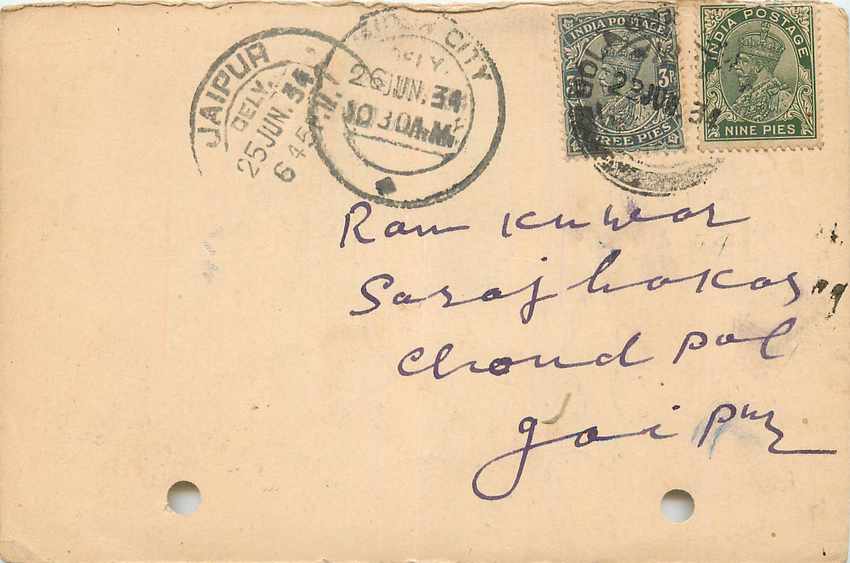 JAIPUR
DELY.
25 JUN. 34
6 45
CITY
DELY.
26 JUN. 34
10 30 A.M.
INDIA POSTAGE
3P
THREE PIES
22 JUN. 34
INDIA POSTAGE
NINE PIES
Ram Kuwar
Sarajhakar
Chond pol
Jaipur